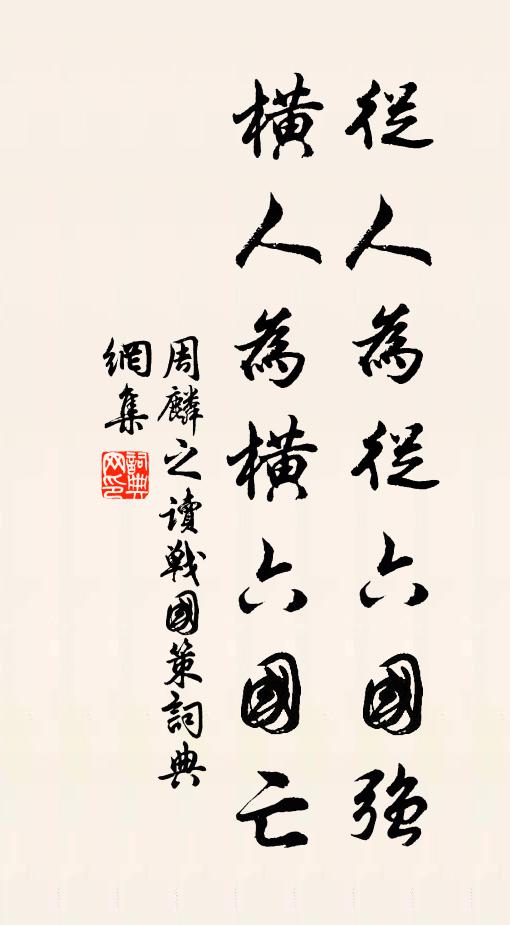 從人為從六國強
橫人為橫六國亡
周麟之讀戰國策詞典
網集
詞典
網印